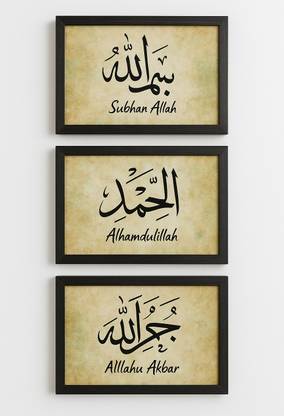 بسم الله
Subhan Allah
الحمد
Alhamdulillah
الله
Alllahu Akbar